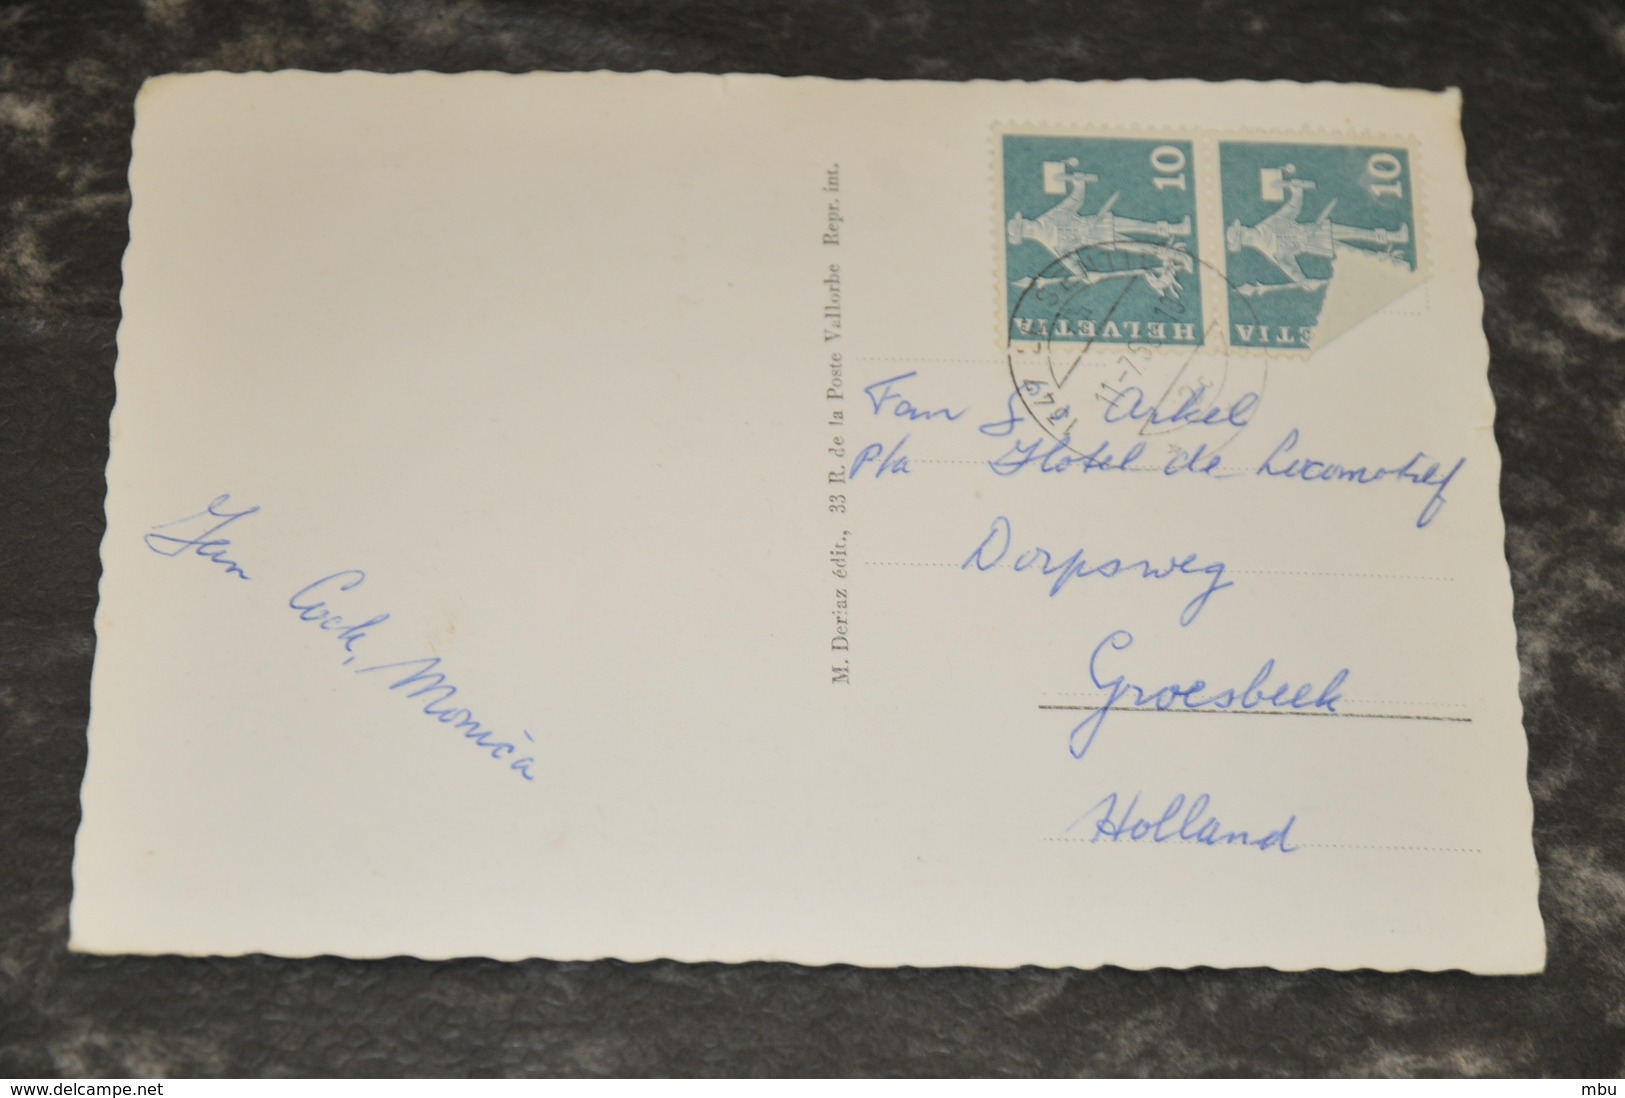 Jan Cock, Monica
M. Deriaz édit., 33 R. de la Poste Vallorbe Repr. int.
10
HELVETIA
10
ETIA
1349
11-7.
Fam Arkel
p/a Hotel de Locomotief
Dorpsweg
Groesbeek
Holland
www.delcampe.net
mbu